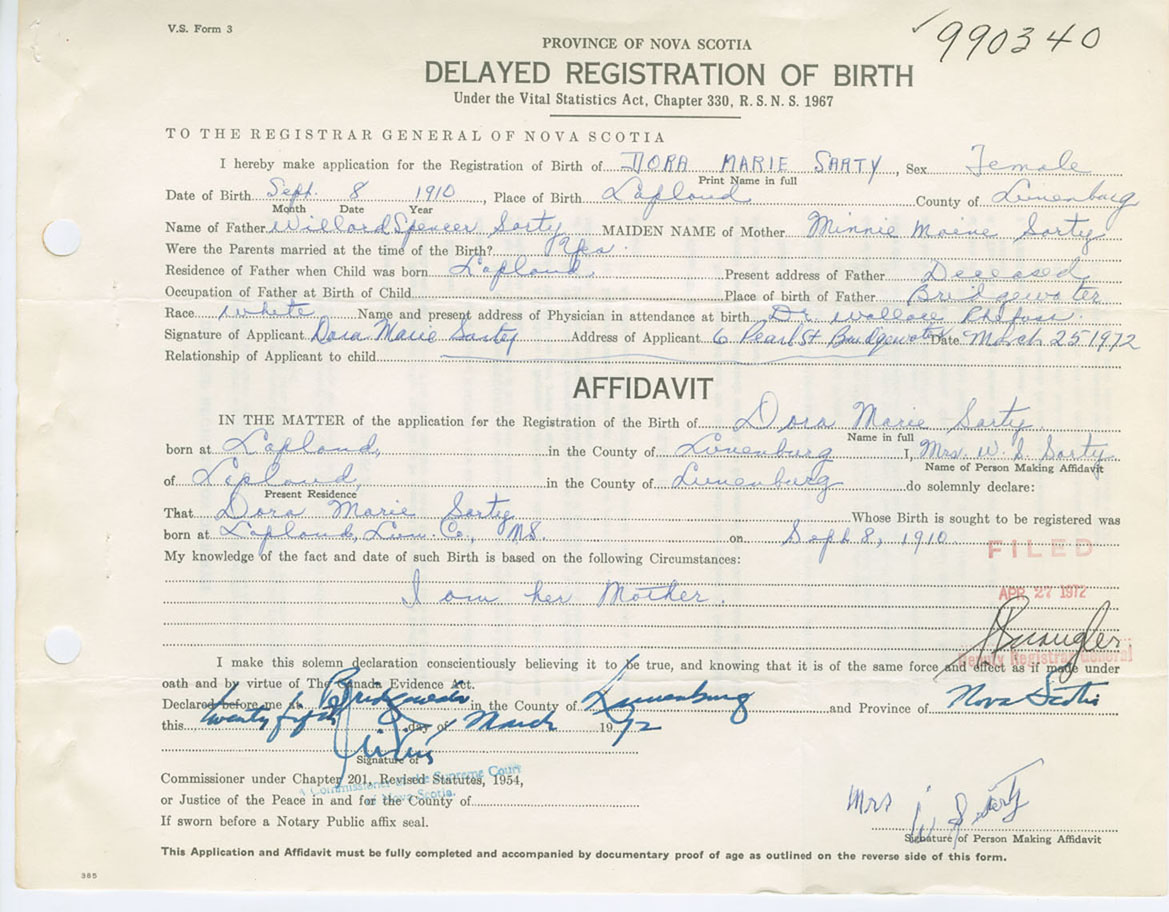 V.S. Form 3
✓990340
PROVINCE OF NOVA SCOTIA
DELAYED REGISTRATION OF BIRTH
Under the Vital Statistics Act, Chapter 330, R. S. N. S. 1967
TO THE REGISTRAR GENERAL OF NOVA SCOTIA
I hereby make application for the Registration of Birth of DORA MARIE SARTY, Sex Female
Print Name in full
Date of Birth Sept. 8 1910, Place of Birth Lapland County of Lunenburg
Month Date Year
Name of Father Willard Spencer Sarty MAIDEN NAME of Mother Minnie Sarty
Were the Parents married at the time of the Birth? Yes.
Residence of Father when Child was born Lapland. Present address of Father Deceased
Occupation of Father at Birth of Child Place of birth of Father Bridgewater
Race White Name and present address of Physician in attendance at birth Dr. Wallace
Signature of Applicant Dora Marie Sarty Address of Applicant 6 Pearl St Bridgewater Date March 25 1972
Relationship of Applicant to child
AFFIDAVIT
IN THE MATTER of the application for the Registration of the Birth of Dora Marie Sarty
Name in full
born at Lapland, in the County of Lunenburg I, Mrs. W. S. Sarty
Name of Person Making Affidavit
of Lapland, in the County of Lunenburg do solemnly declare:
Present Residence
That Dora Marie Sarty Whose Birth is sought to be registered was
born at Lapland, Lun. Co., NS. on Sept 8, 1910.
My knowledge of the fact and date of such Birth is based on the following Circumstances:
FILED
I am her Mother.
APR 27 1972
Deputy Registrar General
I make this solemn declaration conscientiously believing it to be true, and knowing that it is of the same force and effect as if made under
oath and by virtue of The Canada Evidence Act.
Declared before me at Bridgewater in the County of Lunenburg and Province of Nova Scotia
this twenty fifth day of March 1972
Signature of
Commissioner under Chapter 201, Revised Statutes, 1954,
A Commissioner of the Supreme Court
of Nova Scotia.
or Justice of the Peace in and for the County of
If sworn before a Notary Public affix seal.
Mrs W S Sarty
Signature of Person Making Affidavit
This Application and Affidavit must be fully completed and accompanied by documentary proof of age as outlined on the reverse side of this form.
365